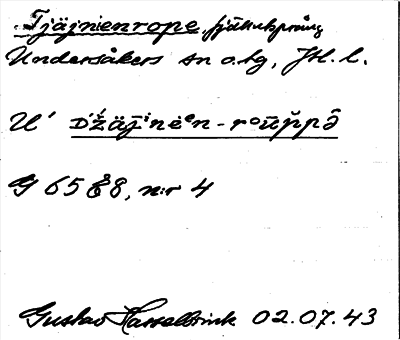 Tjäjnienrope, fjällutsprång
Undersåkers sn o. hg, Jtl. l.
U' D'žäj̄ⁱnėᵉn-rºūp̆pâ
G 65 8, n:r 4
Gustav Hasselbrink 02.07.43